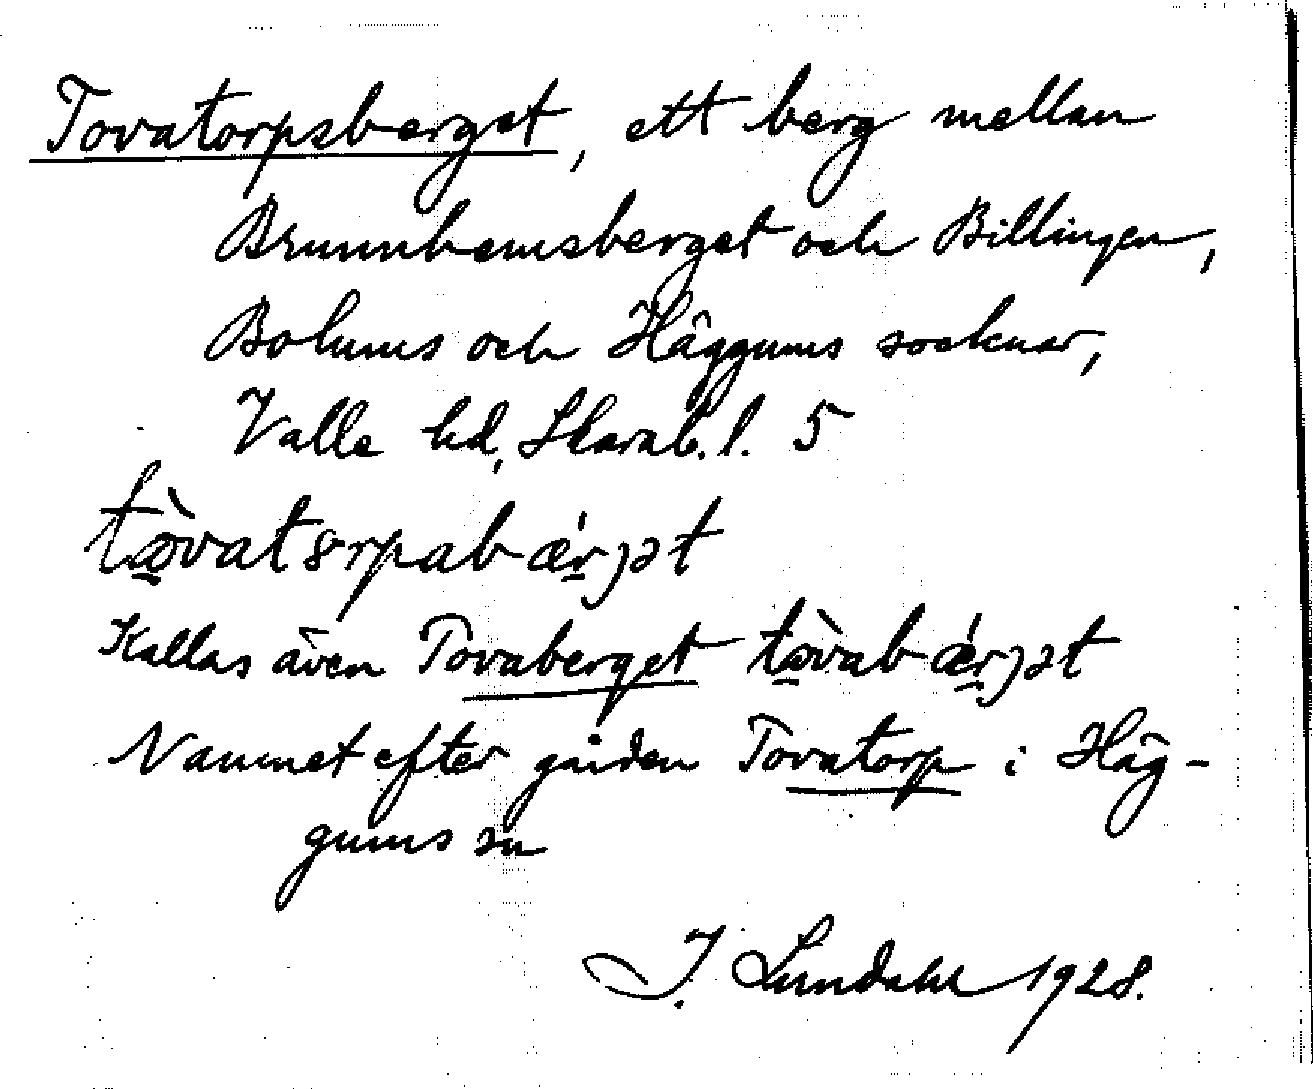 Tovatorpsberget, ett berg mellan
Brunnhemsberget och Billingen,
Bolums och Häggums socknar,
Valle hd, Skarab. l. 5
tɷ̀vatɞrpabǽrjət
Kallas även Tovaberget tɷ̀vabǽrjət
Namnet efter gården Tovatorp i Häg-
gums sn
I. Lundahl 1928.